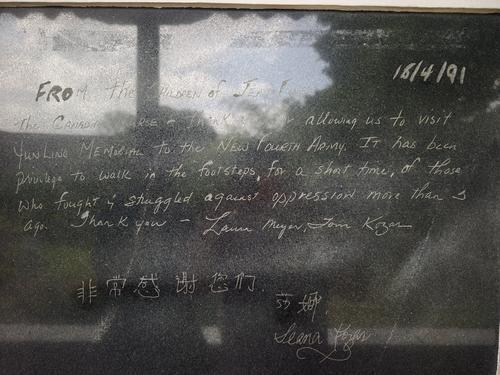 16/4/91
FROM the CHILDREN of JEAN
The CANADIAN NURSE - THANK allowing us to visit
YUNLING MEMORIAL to the NEW FOURTH ARMY. IT has been
privilege to walk in the footsteps, for a short time, of those
who fought & struggled against oppression more than
ago. Thank you - Laura Meyer, Tom Kozar
非常感谢您们
莎娜
Leana Kozar